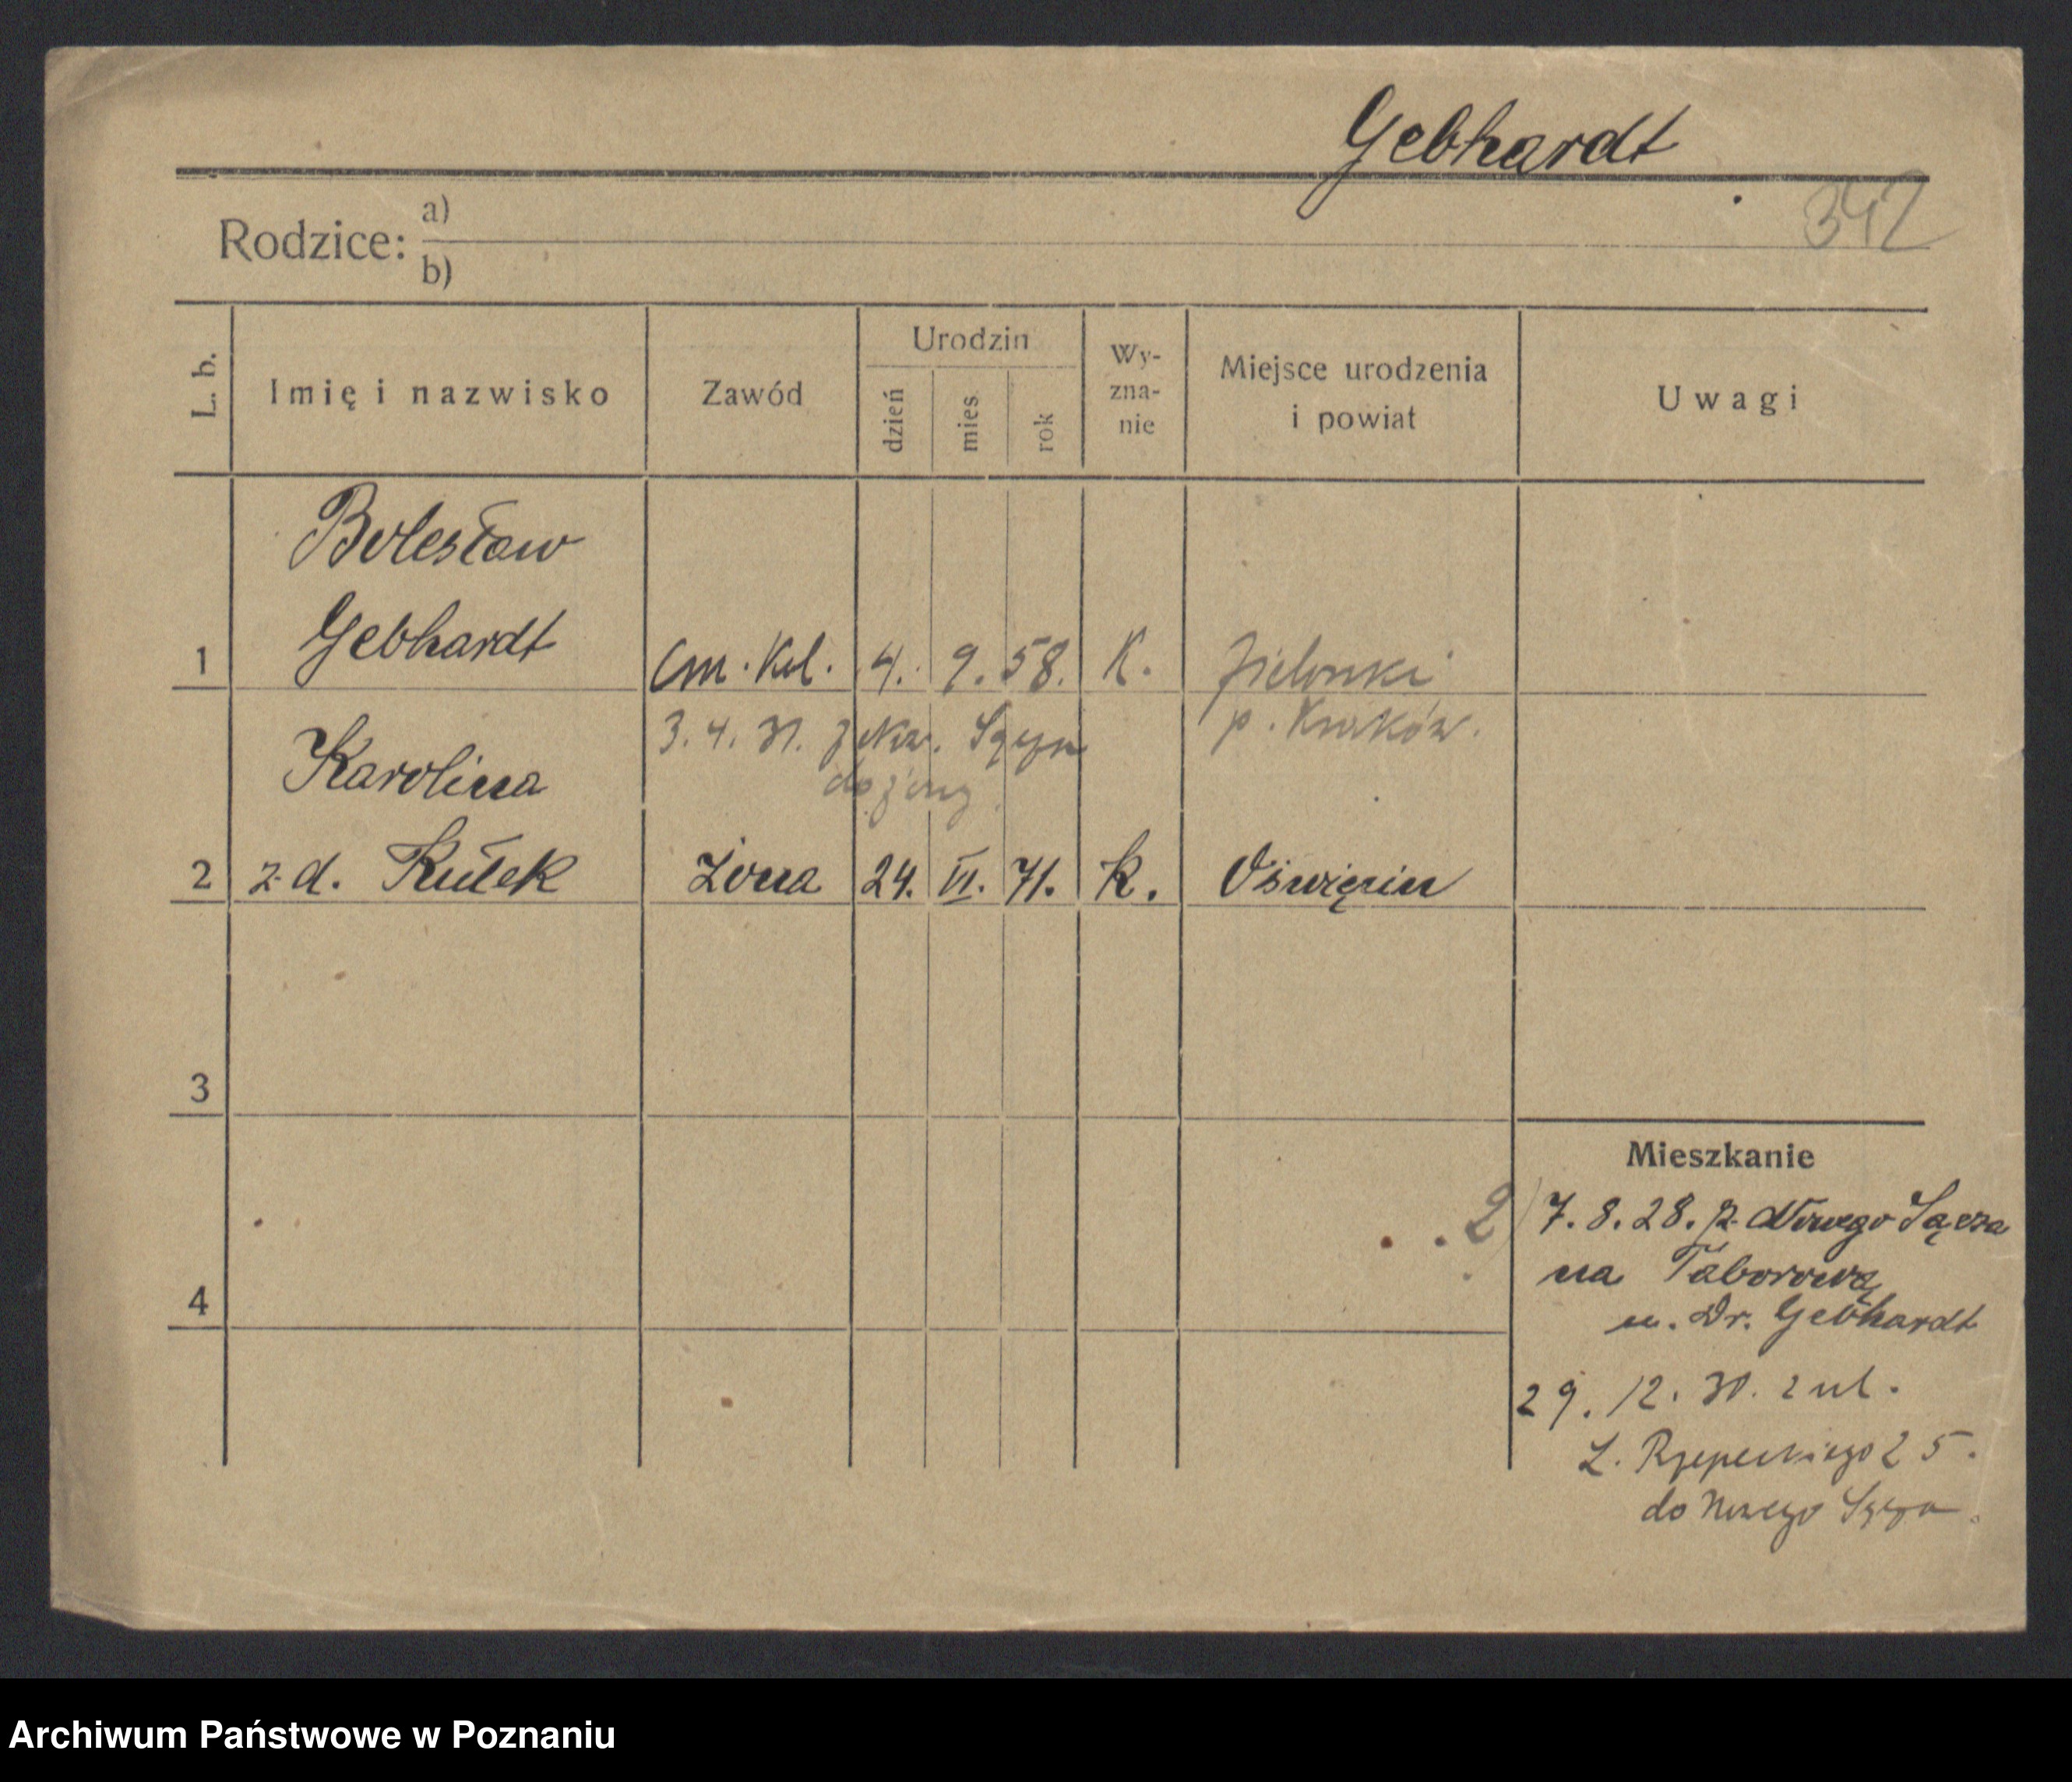 Gebhardt
342
Rodzice: a)
b)
L. b.
Imię i nazwisko
Zawód
Urodzin
dzień
mies.
rok
Wy-
zna-
nie
Miejsce urodzenia
i powiat
Uwagi
Bolesław
Gebhardt
1 Em. Kol. 4. 9. 58. K. Zielonki
p. Kraków.
3. 4. 31. z Now. Sącza
do żony
Karolina
2 z d. Kułek Żona 24. VI. 71. K. Oświęcim
3
4
Mieszkanie
2) 7. 8. 28. z Nowego Sącza
na Taborową
u. Dr. Gebhardt
29. 12. 30. z ul.
L. Rzepeckiego 25.
do Nowego Sącza.
Archiwum Państwowe w Poznaniu